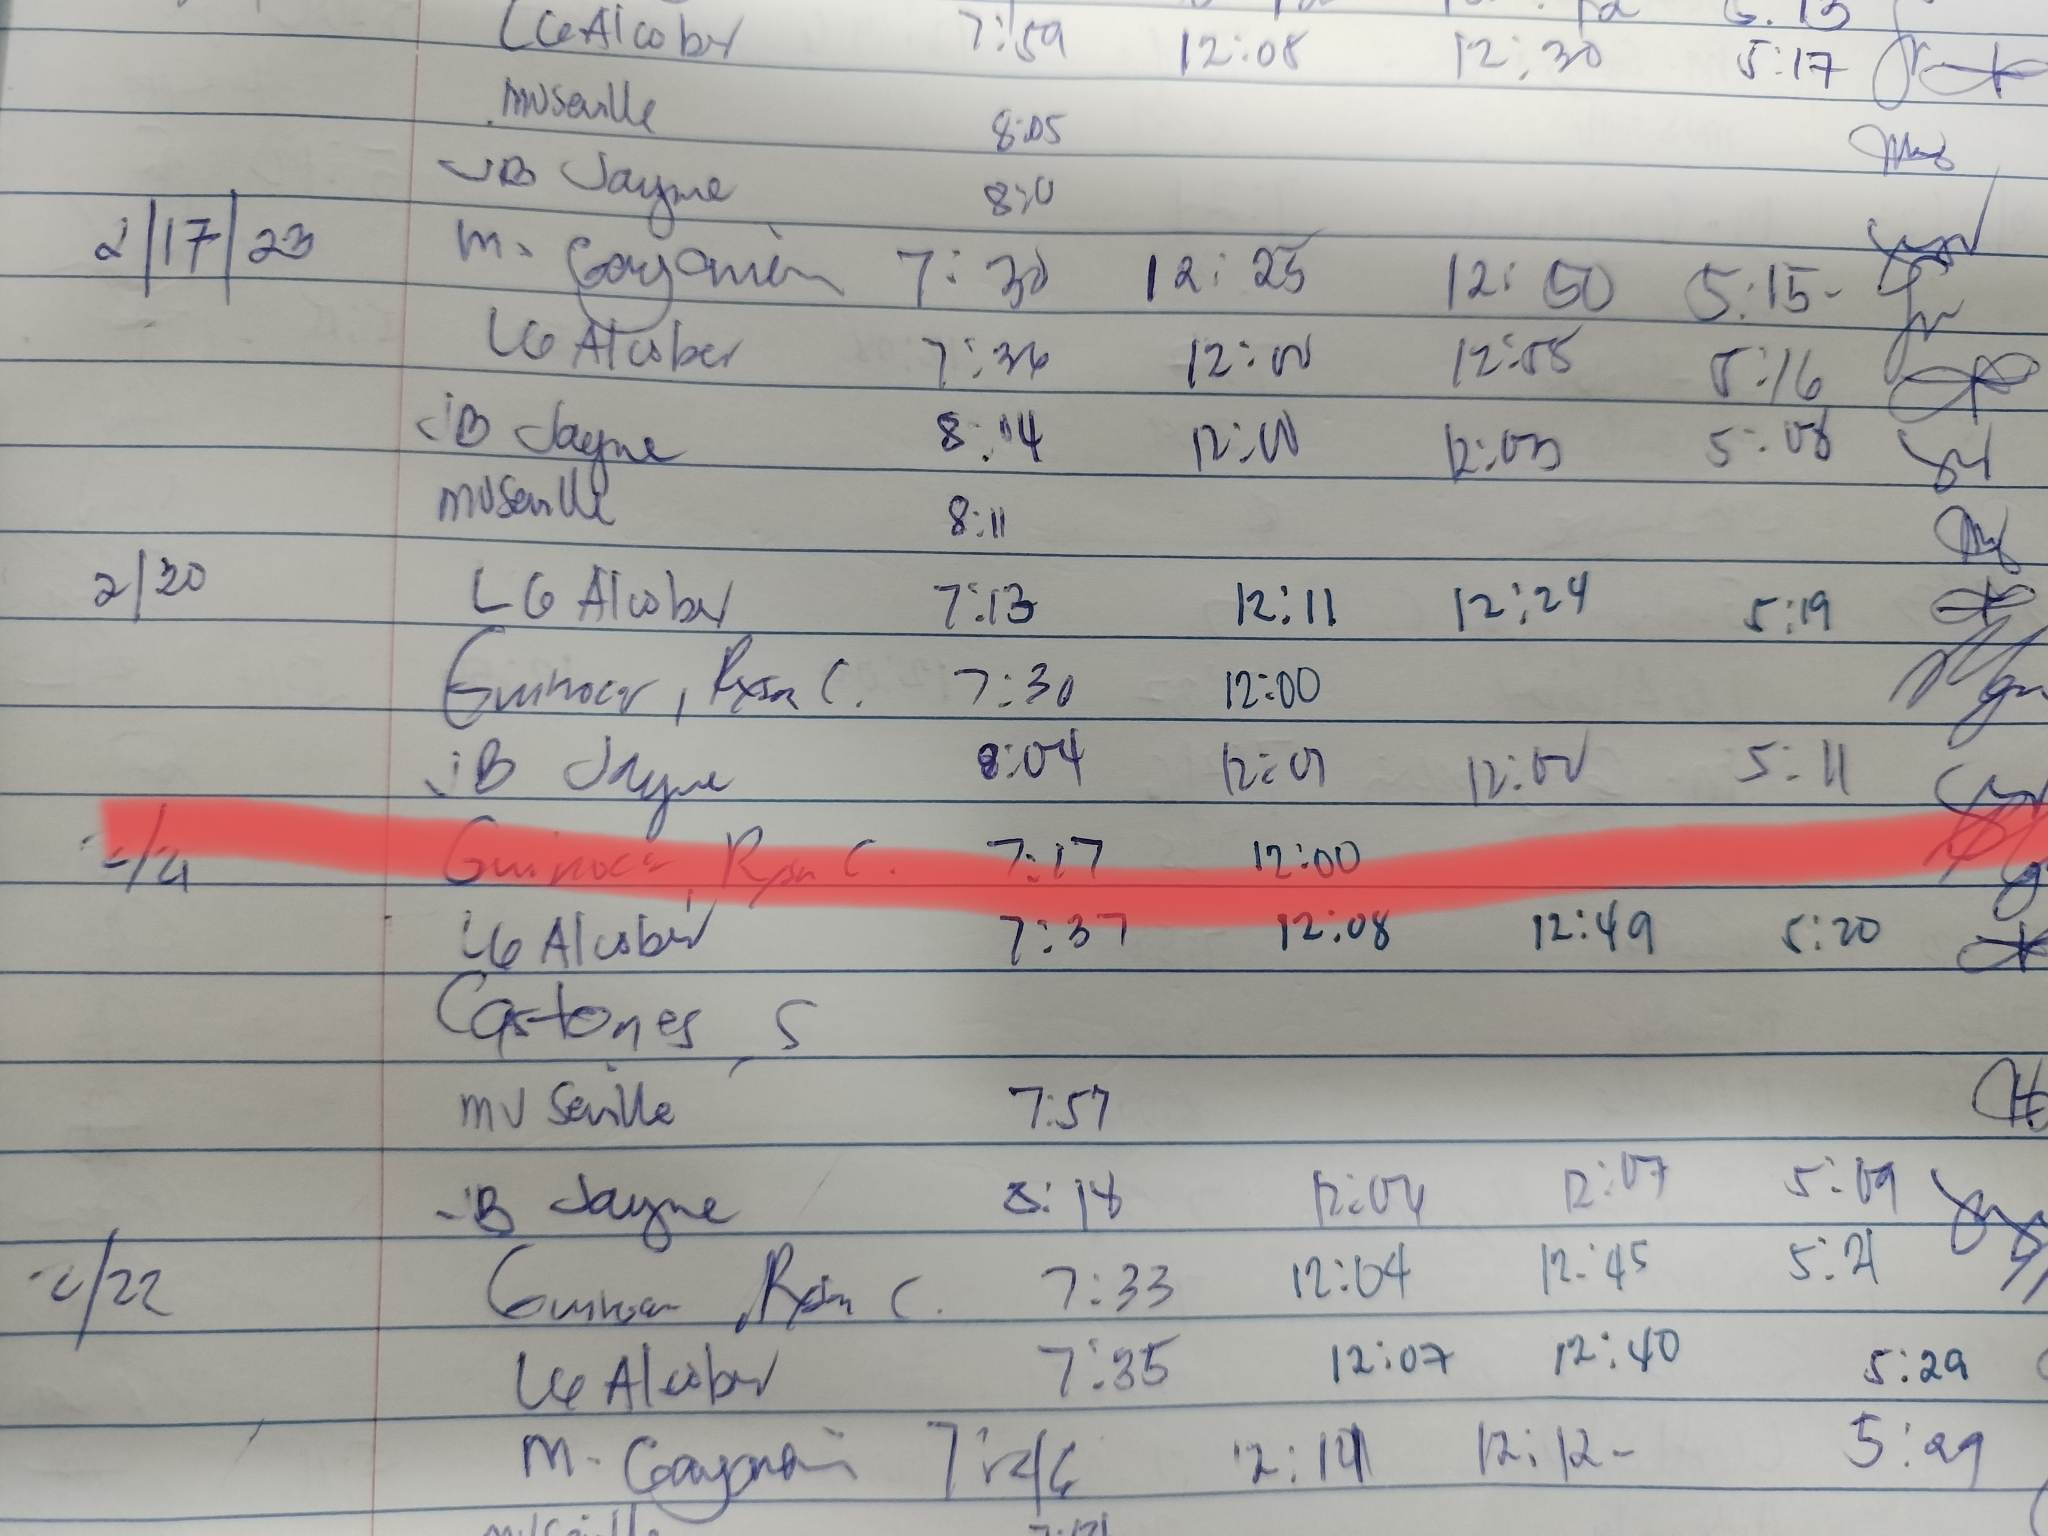 LG Alcober 7:59 12:08 12:30 5:17
MV Seville 8:05
JB Jayme
2/17/23 M. 7:30 12:25 12:50 5:15
LG Alcober 7:36 12:01 12:55 5:16
JB Jayme 8:14 12:01 12:03 5:08
MV Seville 8:11
2/20 LG Alcober 7:13 12:11 12:24 5:19
Guinocor, C. 7:30 12:00
JB Jayme 8:04 12:01 5:11
2/21 Guinocor, C. 7:17 12:00
LG Alcober 7:37 12:08 12:49 5:20
Castones, S
MV Seville 7:57
JB Jayme 8:18 12:04 12:07 5:09
2/22 Guinocor, C. 7:33 12:04 12:45 5:21
LG Alcober 7:35 12:07 12:40 5:29
M. 7:46 12:12 5:29
MV Seville